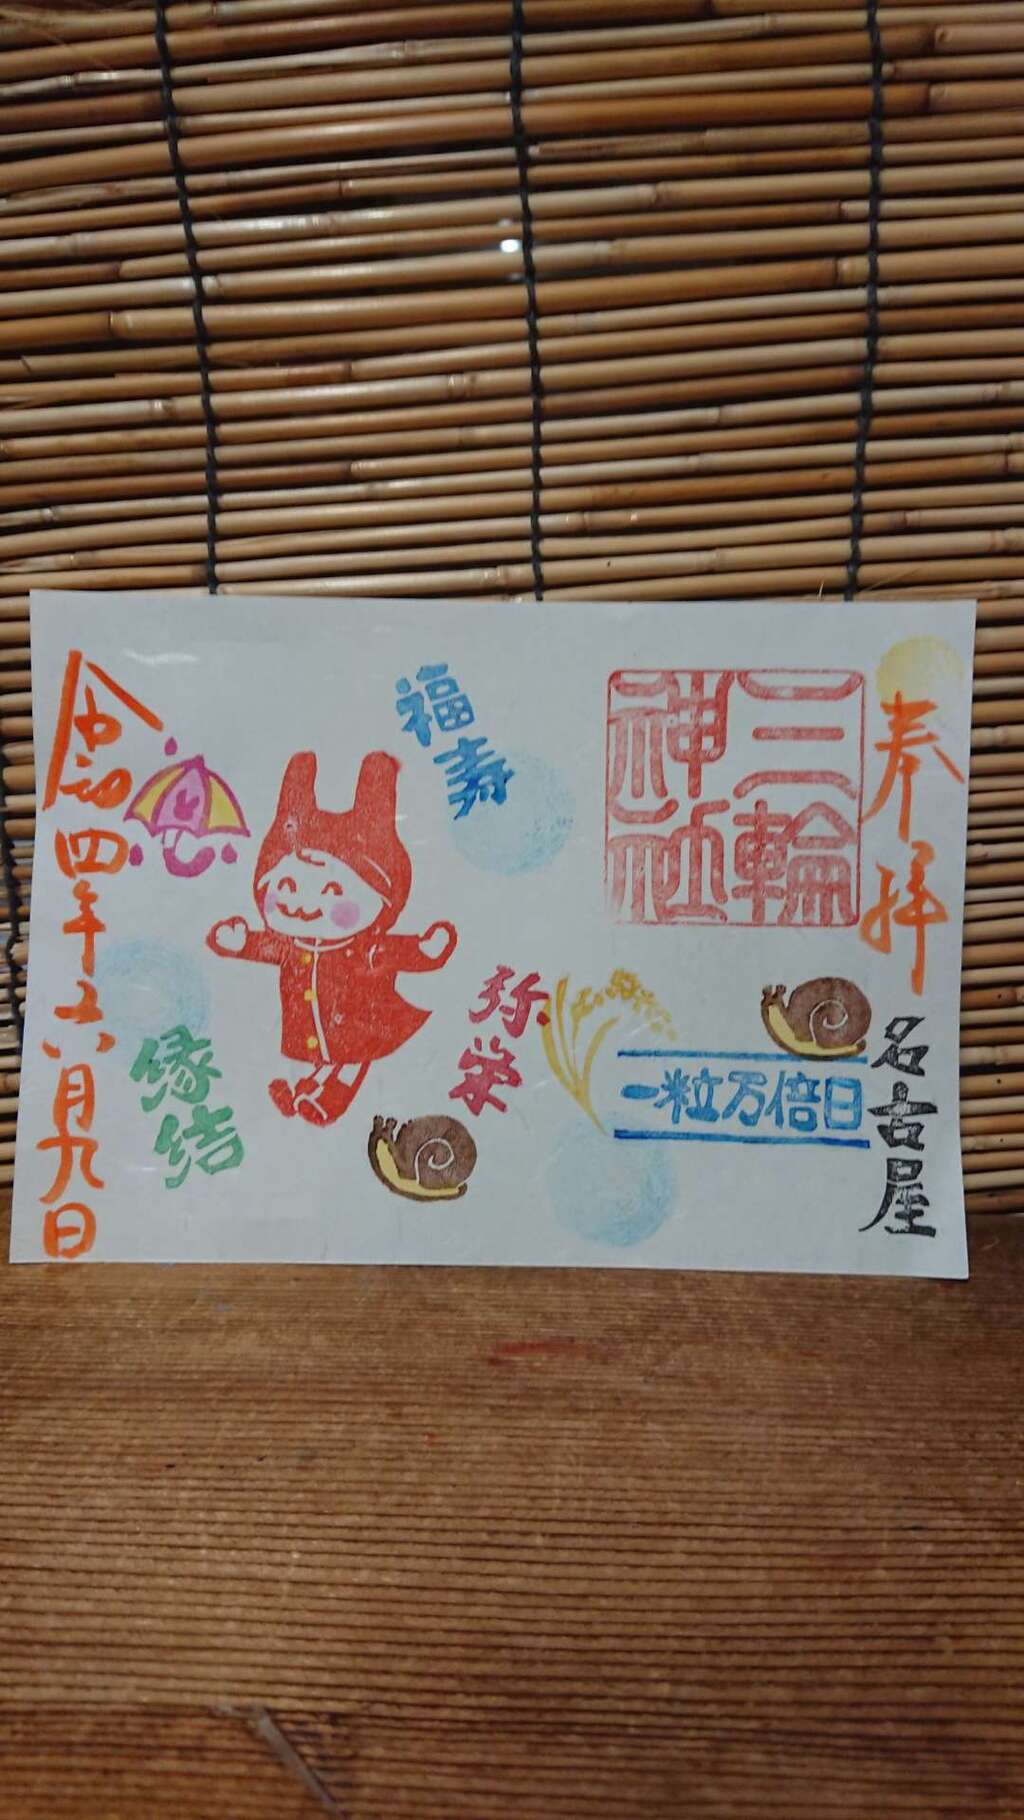 奉拝
名古屋
三輪
神社
一粒万倍日
福寿
弥栄
縁結
令和四年六月九日